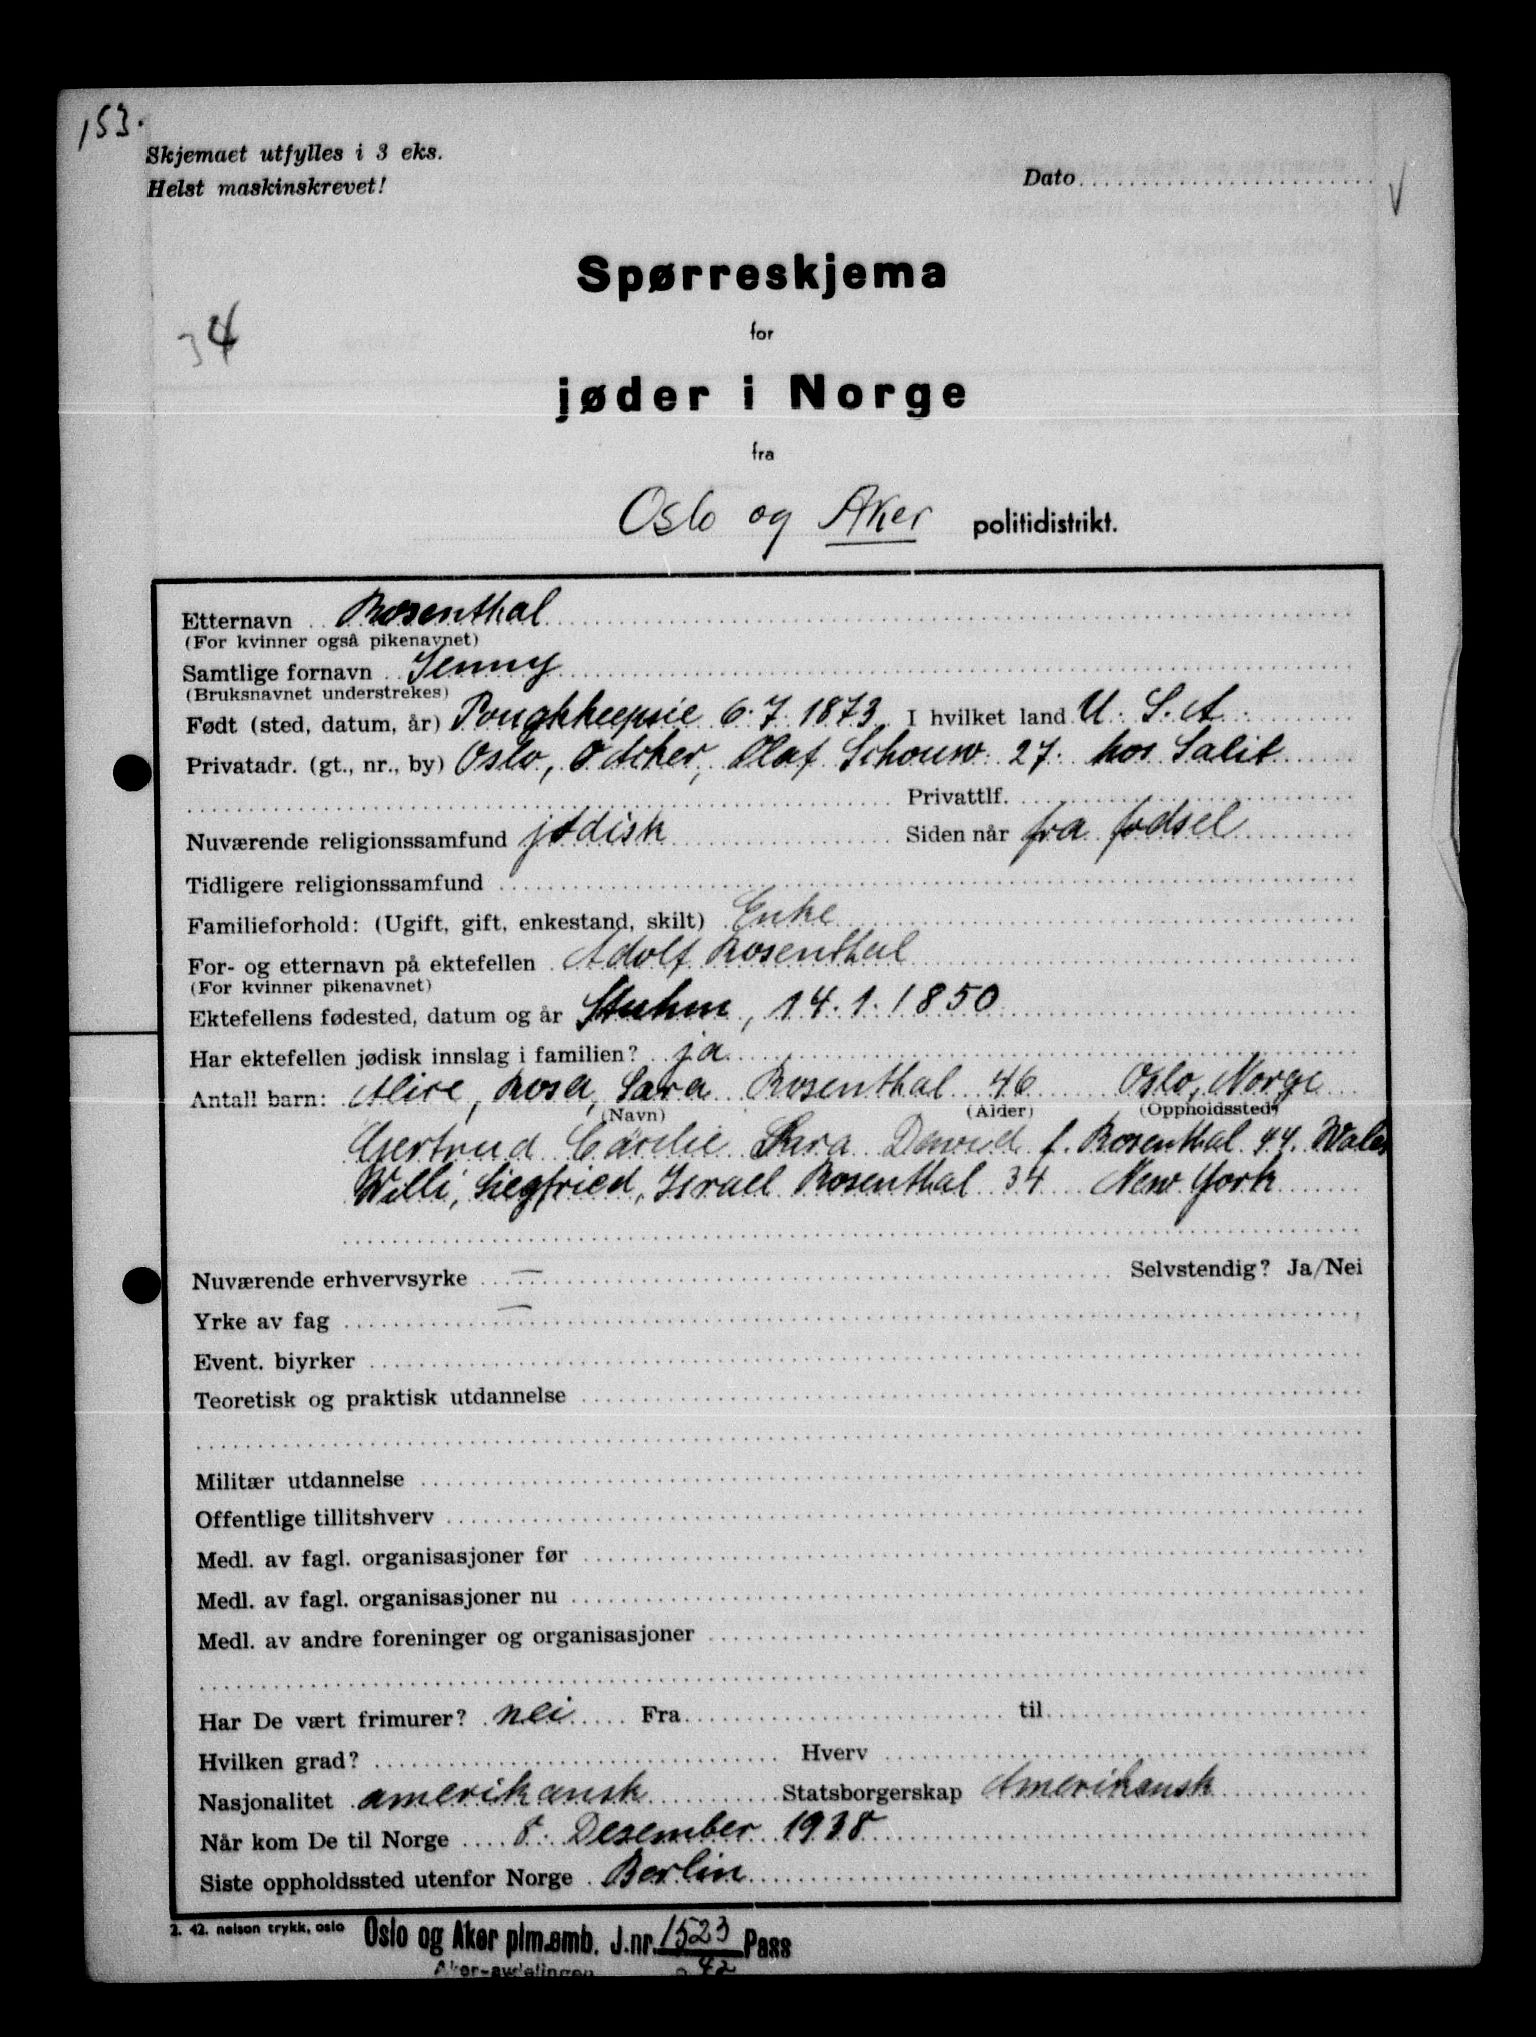 153.
Skjemaet utfylles i 3 eks.
Helst maskinskrevet!
Dato
Spørreskjema
34
for
jøder i Norge
fra
Oslo og Aker politidistrikt.
Etternavn Rosenthal
(For kvinner også pikenavnet)
Samtlige fornavn Jenny
(Bruksnavnet understrekes)
Født (sted, datum, år) Poughkeepsie 6.7.1873. I hvilket land U.S.A.
Privatadr. (gt., nr., by) Oslo, Ö Acker, Olaf Schouw. 27. hos Salit
Privattlf.
Nuværende religionssamfund jødisk Siden når fra fødsel
Tidligere religionssamfund
Familieforhold: (Ugift, gift, enkestand, skilt) Enke
For- og etternavn på ektefellen Adolf Rosenthal
(For kvinner pikenavnet)
Ektefellens fødested, datum og år Stuhm, 14.1.1850
Har ektefellen jødisk innslag i familien? ja
Antall barn: Alice, Rosa, Sara Rosenthal 46 Oslo, Norge
(Navn) (Alder) (Oppholdssted)
Gertrud Sara David f. Rosenthal 44. Wales
Willi, Siegfried, Israel Rosenthal 34 New York
Nuværende erhvervsyrke — Selvstendig? Ja/Nei
Yrke av fag —
Event. biyrker
Teoretisk og praktisk utdannelse
Militær utdannelse
Offentlige tillitshverv
Medl. av fagl. organisasjoner før
Medl. av fagl. organisasjoner nu
Medl. av andre foreninger og organisasjoner
Har De vært frimurer? nei Fra til
Hvilken grad? Hverv
Nasjonalitet amerikansk Statsborgerskap Amerikansk
Når kom De til Norge 8. Desember 1938
Siste oppholdssted utenfor Norge Berlin
2. 42. nelson trykk, oslo Oslo og Aker plm.emb. J.nr. 1523 Pass
Aker-avdelingen 42